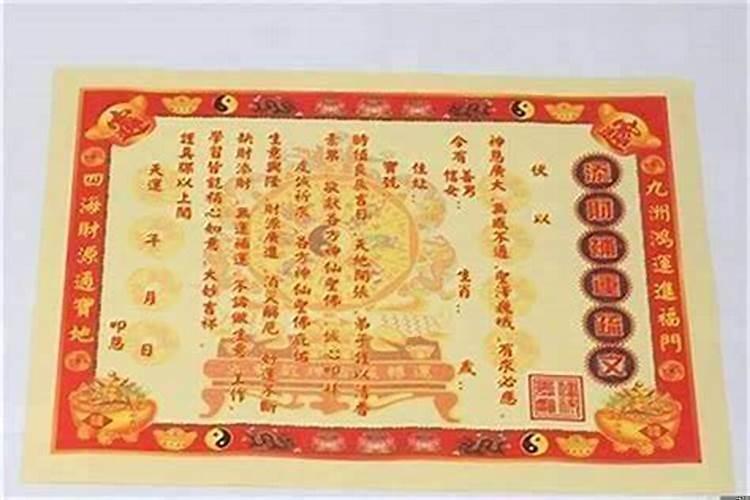 九洲鴻運進福門
添財補運疏文
伏以
神恩廣大 無感不通 聖澤巍峨 有求必應
今有善男信女： 生肖： 歲：
住址：
寶號
時值良辰吉日 天地開張 弟子虔以清香
素果 敬獻各方神仙聖佛 誠心叩拜
虔誠祈求 各方神仙聖佛庇佑
生意興隆 財源廣進 消災解厄 好運不斷
缺財添財 無運補運 不論做生意 工作
學習皆能稱心如意 大妙吉祥
謹具疏以上聞
天運 年 月 日 叩恩
四海財源通寶地